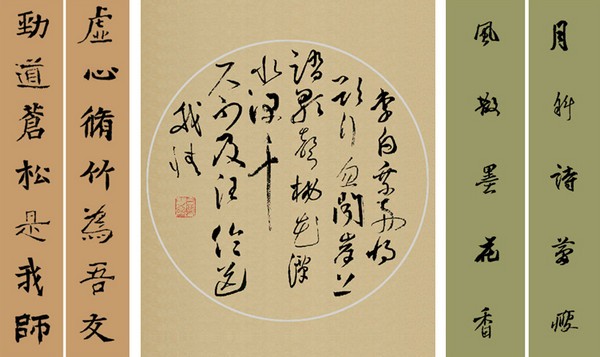 月斜詩夢瘦
風散墨花香
李白乘舟將
欲行忽聞岸上
踏歌聲桃花潭
水深千
尺不及汪倫送
我情
虛心脩竹為吾友
勁道蒼松是我師